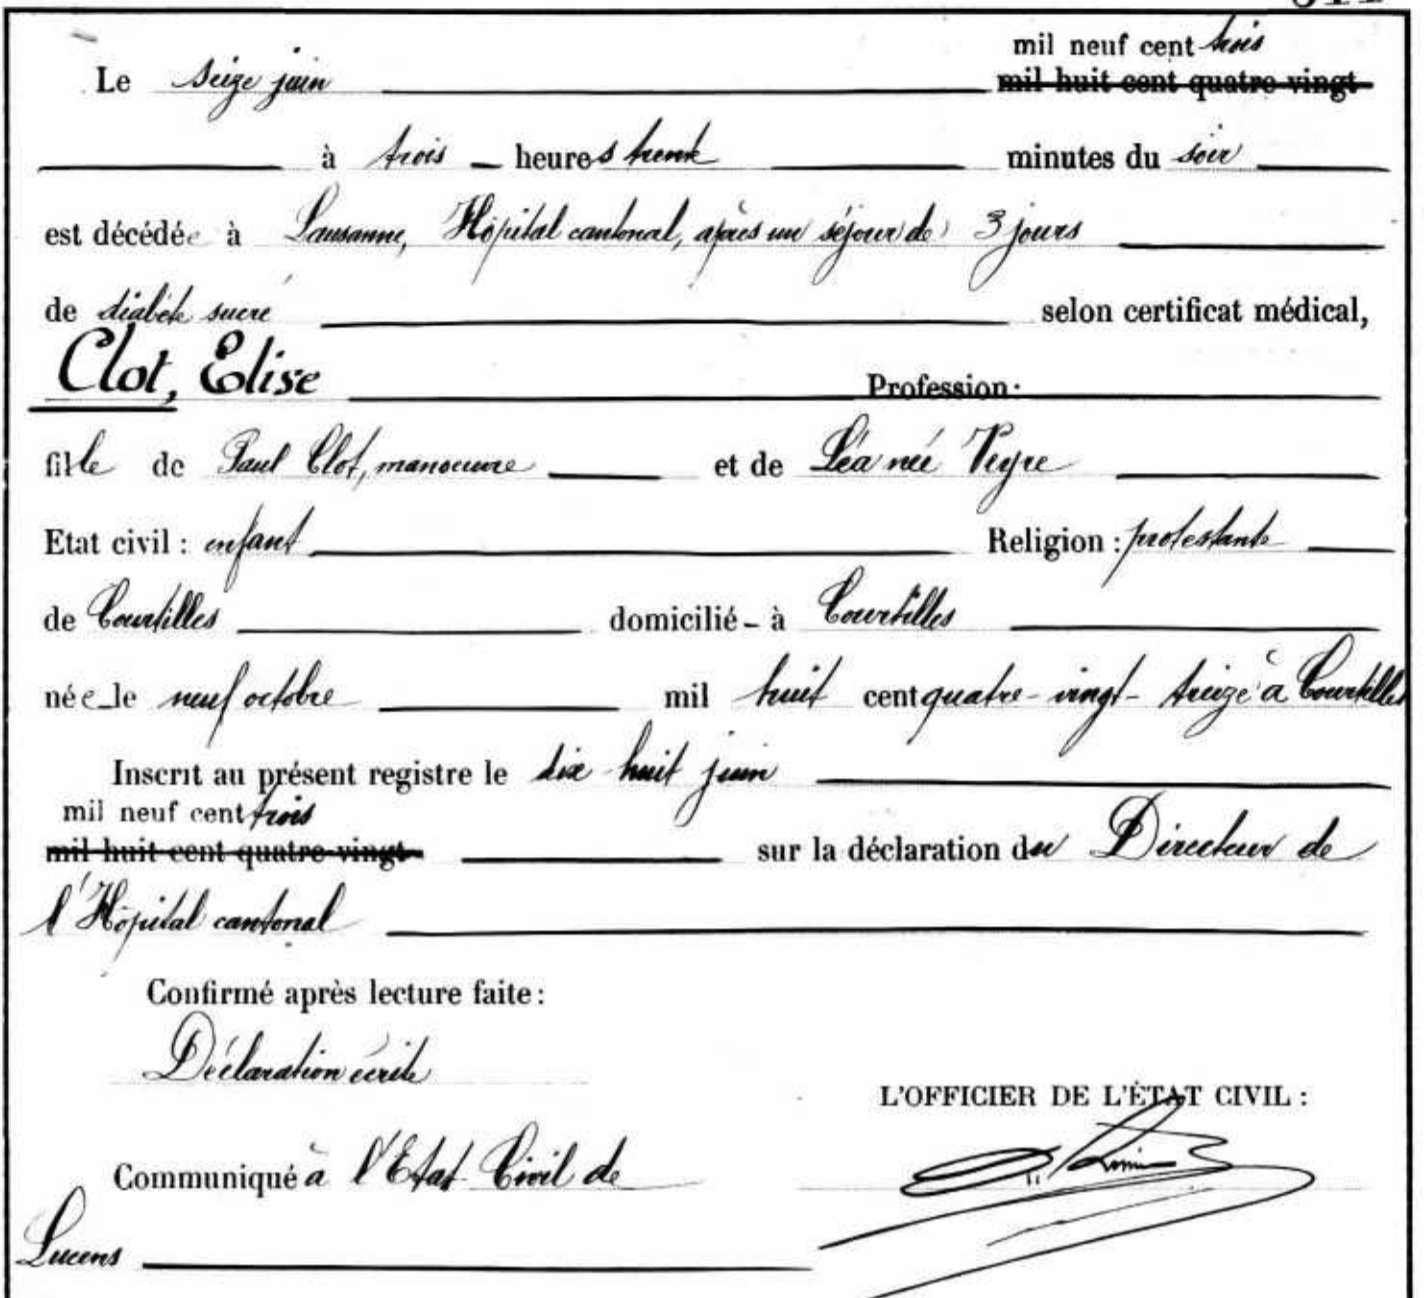 mil neuf cent trois
Le seize juin mil huit cent quatre-vingt
à trois heures trente minutes du soir
est décédée à Lausanne, Hôpital cantonal, après un séjour de 3 jours
de diabète sucré selon certificat médical,
Clot, Elise Profession:
fille de Paul Clot, manoeuvre et de Léa née Veyre
Etat civil : enfant Religion : protestante
de Courtilles domicilié à Courtilles
née le neuf octobre mil huit cent quatre-vingt-treize à Courtilles
Inscrit au présent registre le dix-huit juin
mil neuf cent trois
mil huit cent quatre-vingt sur la déclaration du Directeur de
l'Hôpital cantonal
Confirmé après lecture faite :
Déclaration écrite
L'OFFICIER DE L'ÉTAT CIVIL :
Communiqué à l'Etat Civil de
Lucens